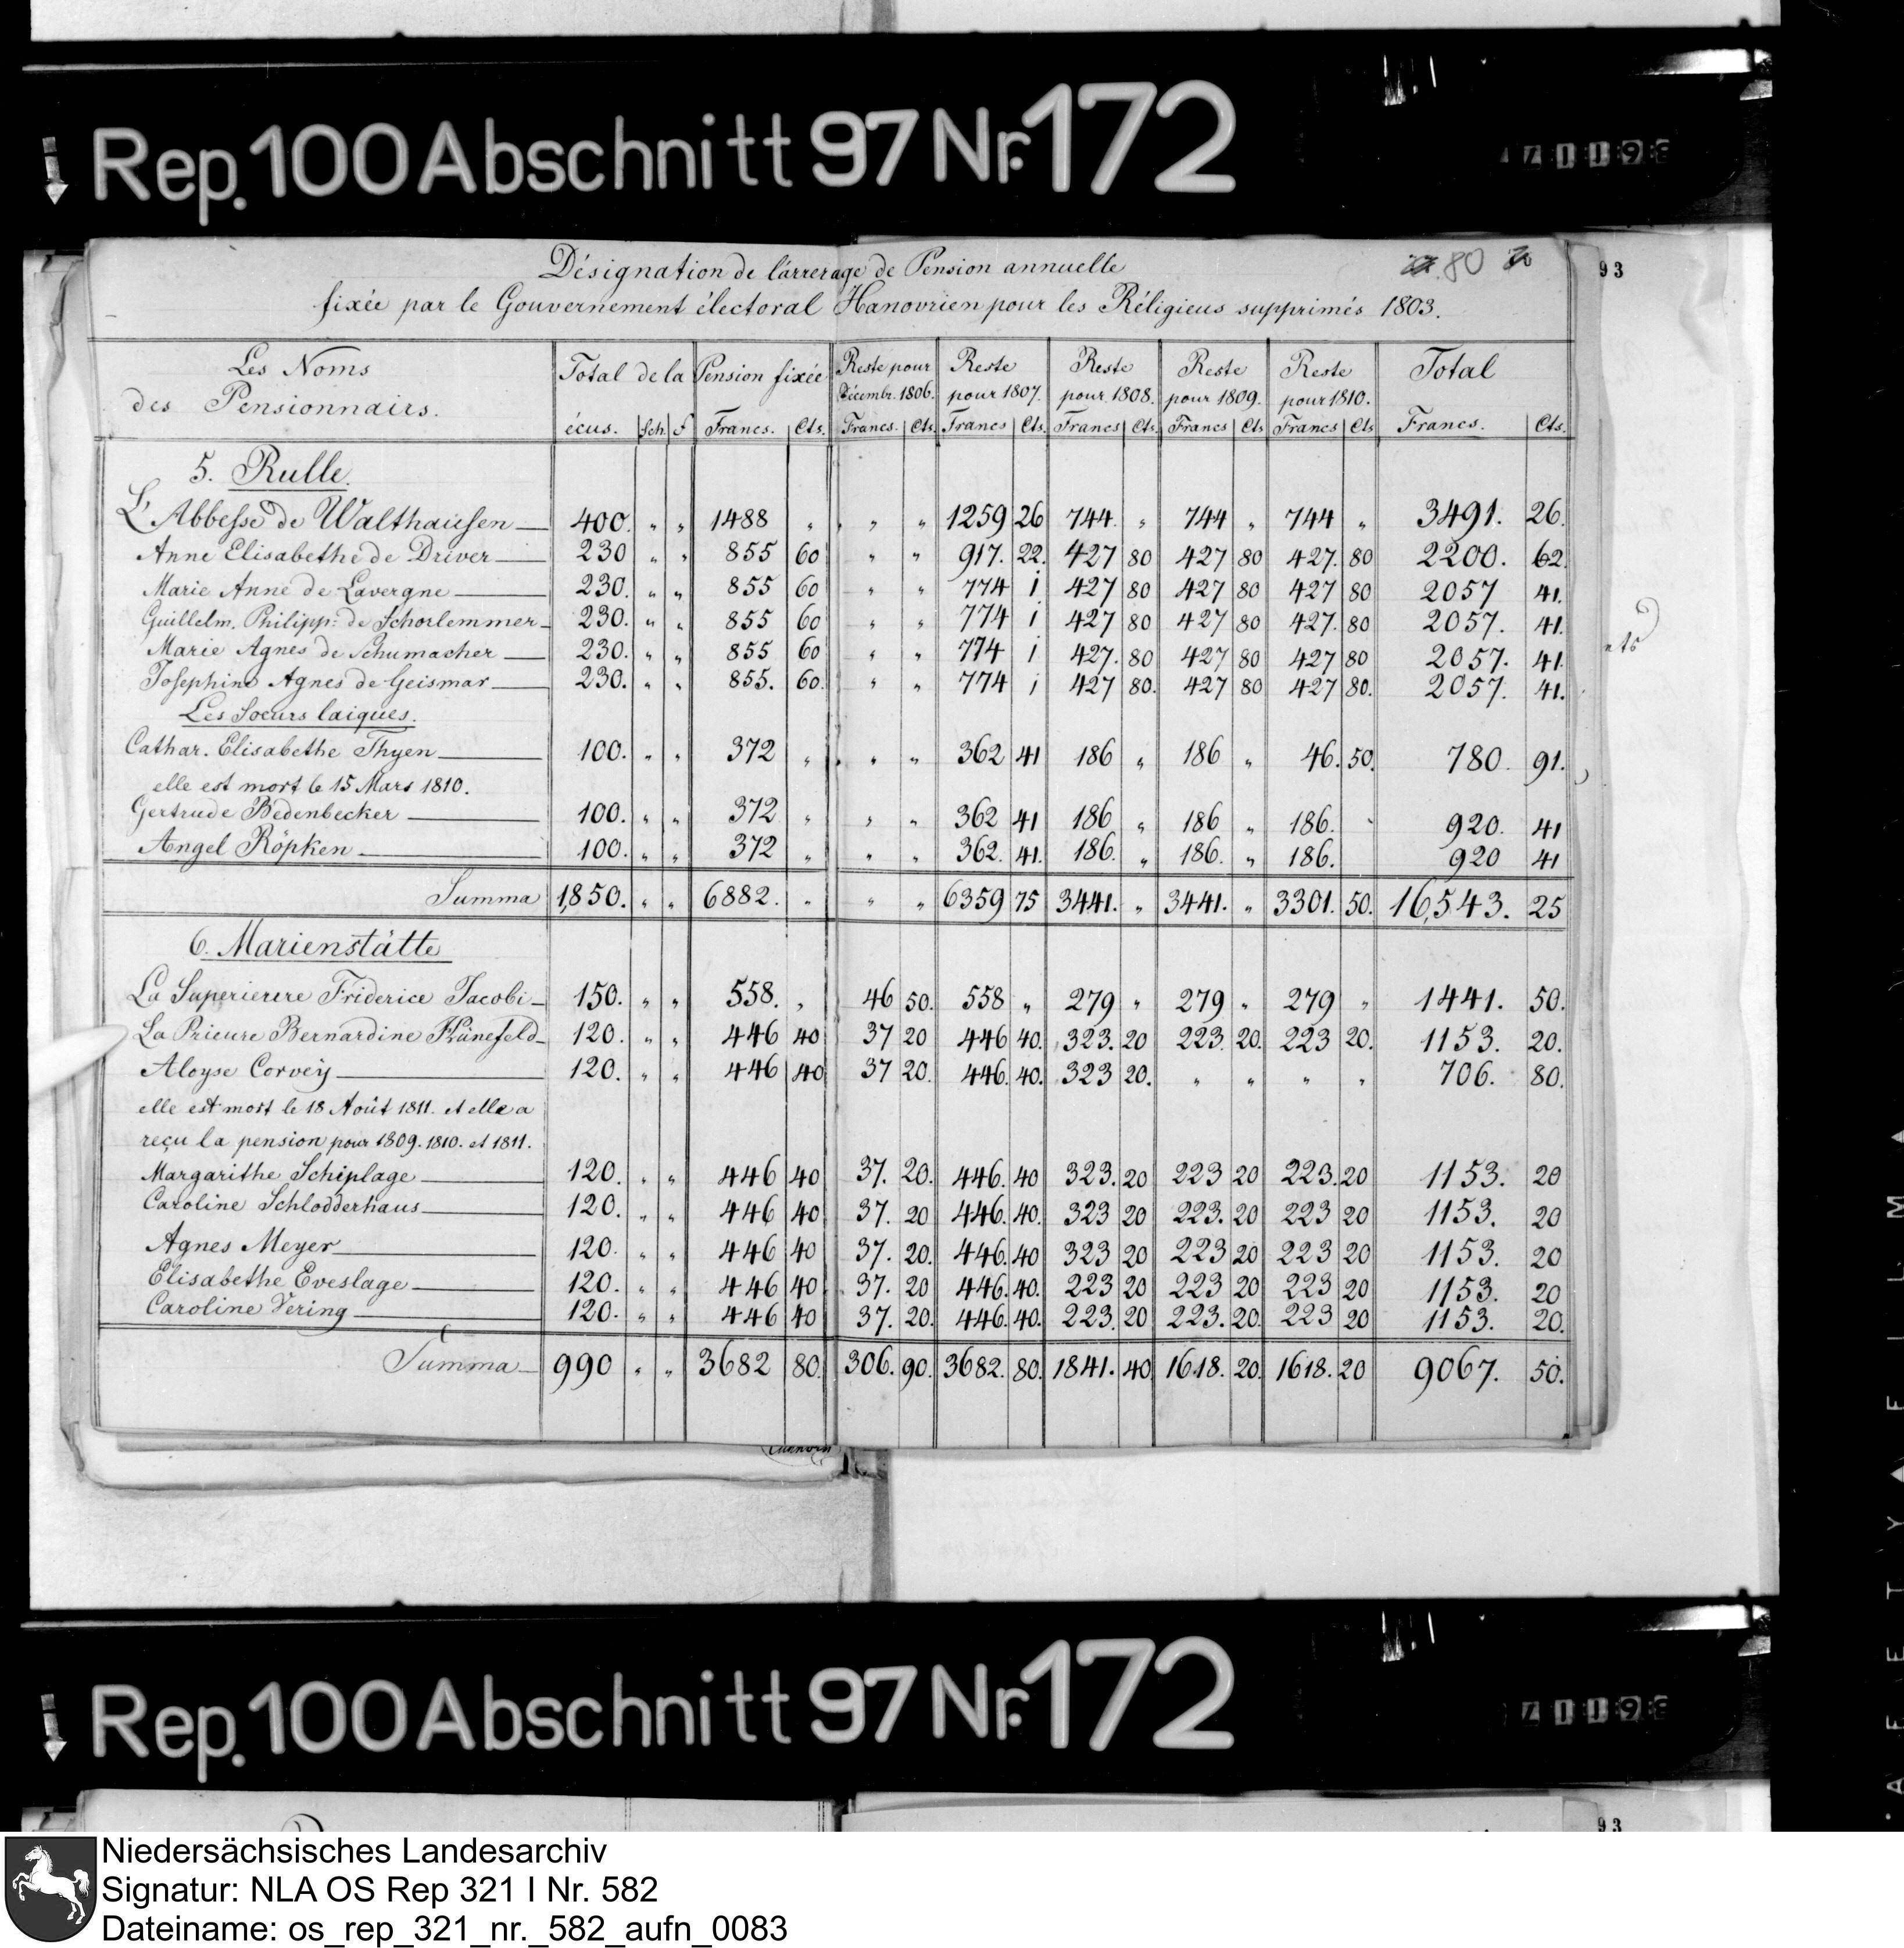 Rep. 100 Abschnitt 97 Nr. 172
93
80
Désignation de l'arrerage de Pension annuelle
fixée par le Gouvernement électoral Hanovrien pour les Réligieus supprimés 1803.
Les Noms des Pensionnairs. | Total de la Pension fixée | Reste pour Décembr. 1806. | Reste pour 1807. | Reste pour 1808. | Reste pour 1809. | Reste pour 1810. | Total
écus. | Sch. | ₰ | Francs. | Cts. | Francs. | Cts. | Francs | Cts. | Francs | Cts. | Francs | Cts | Francs | Cts | Francs. | Cts.
5. Rulle.
L'Abbesse de Walthausen 400. " " 1488 " " " 1259 26 744. " 744 " 744 " 3491. 26.
Anne Elisabethe de Driver 230 " " 855 60 " " 917. 22. 427 80 427 80 427. 80 2200. 62
Marie Anne de Lavergne 230. " " 855 60 " " 774 i 427 80 427 80 427 80 2057 41.
Guillelm. Philipp: de Schorlemmer 230. " " 855 60 " " 774 i 427 80 427 80 427. 80 2057. 41.
Marie Agnes de Schumacher 230. " " 855 60 " " 774 i 427. 80 427 80 427 80 2057. 41.
Josephine Agnes de Geismar 230. " " 855. 60. " " 774 i 427 80. 427 80 427 80. 2057. 41.
Les Soeurs laiques.
Cathar. Elisabethe Thyen 100. " " 372 " " " 362 41 186 " 186 " 46. 50. 780. 91.
elle est mort le 15 Mars 1810.
Gertrude Bedenbecker 100. " " 372 " " " 362 41 186 " 186 " 186. 920. 41
Angel Röpken 100. " " 372 " " " 362. 41. 186. " 186. " 186. 920 41
Summa 1,850. " " 6882. " " " 6359 75 3441. " 3441. " 3301. 50. 16,543. 25
6. Marienstätte
La Superierere Friderice Jacobi 150. " " 558. " 46 50. 558 " 279 " 279 " 279 " 1441. 50.
La Prieure Bernardine Hünefeld 120. " " 446 40 37 20 446 40. 323. 20 223. 20. 223 20. 1153. 20.
Aloyse Corveÿ 120. " " 446 40 37 20. 446. 40. 323 20. " " " " 706. 80.
elle est mort le 18 Août 1811. et elle a
reçu la pension pour 1809. 1810. et 1811.
Margarithe Schiplage 120. " " 446 40 37. 20. 446. 40 323. 20 223 20 223. 20 1153. 20
Caroline Schlodderhaus 120. " " 446 40 37. 20 446. 40. 323 20 223. 20 223 20 1153. 20
Agnes Meyer 120. " " 446 40 37. 20. 446. 40 323 20 223 20 223 20 1153. 20
Elisabethe Eveslage 120. " " 446 40 37. 20 446. 40. 223 20 223 20 223 20 1153. 20
Caroline Vering 120. " " 446 40 37. 20. 446. 40. 223. 20 223. 20. 223 20 1153. 20.
Summa 990 " " 3682 80. 306. 90. 3682. 80. 1841. 40 1618. 20. 1618. 20 9067. 50.
Rep. 100 Abschnitt 97 Nr. 172
93
Niedersächsisches Landesarchiv
Signatur: NLA OS Rep 321 I Nr. 582
Dateiname: os_rep_321_nr._582_aufn_0083